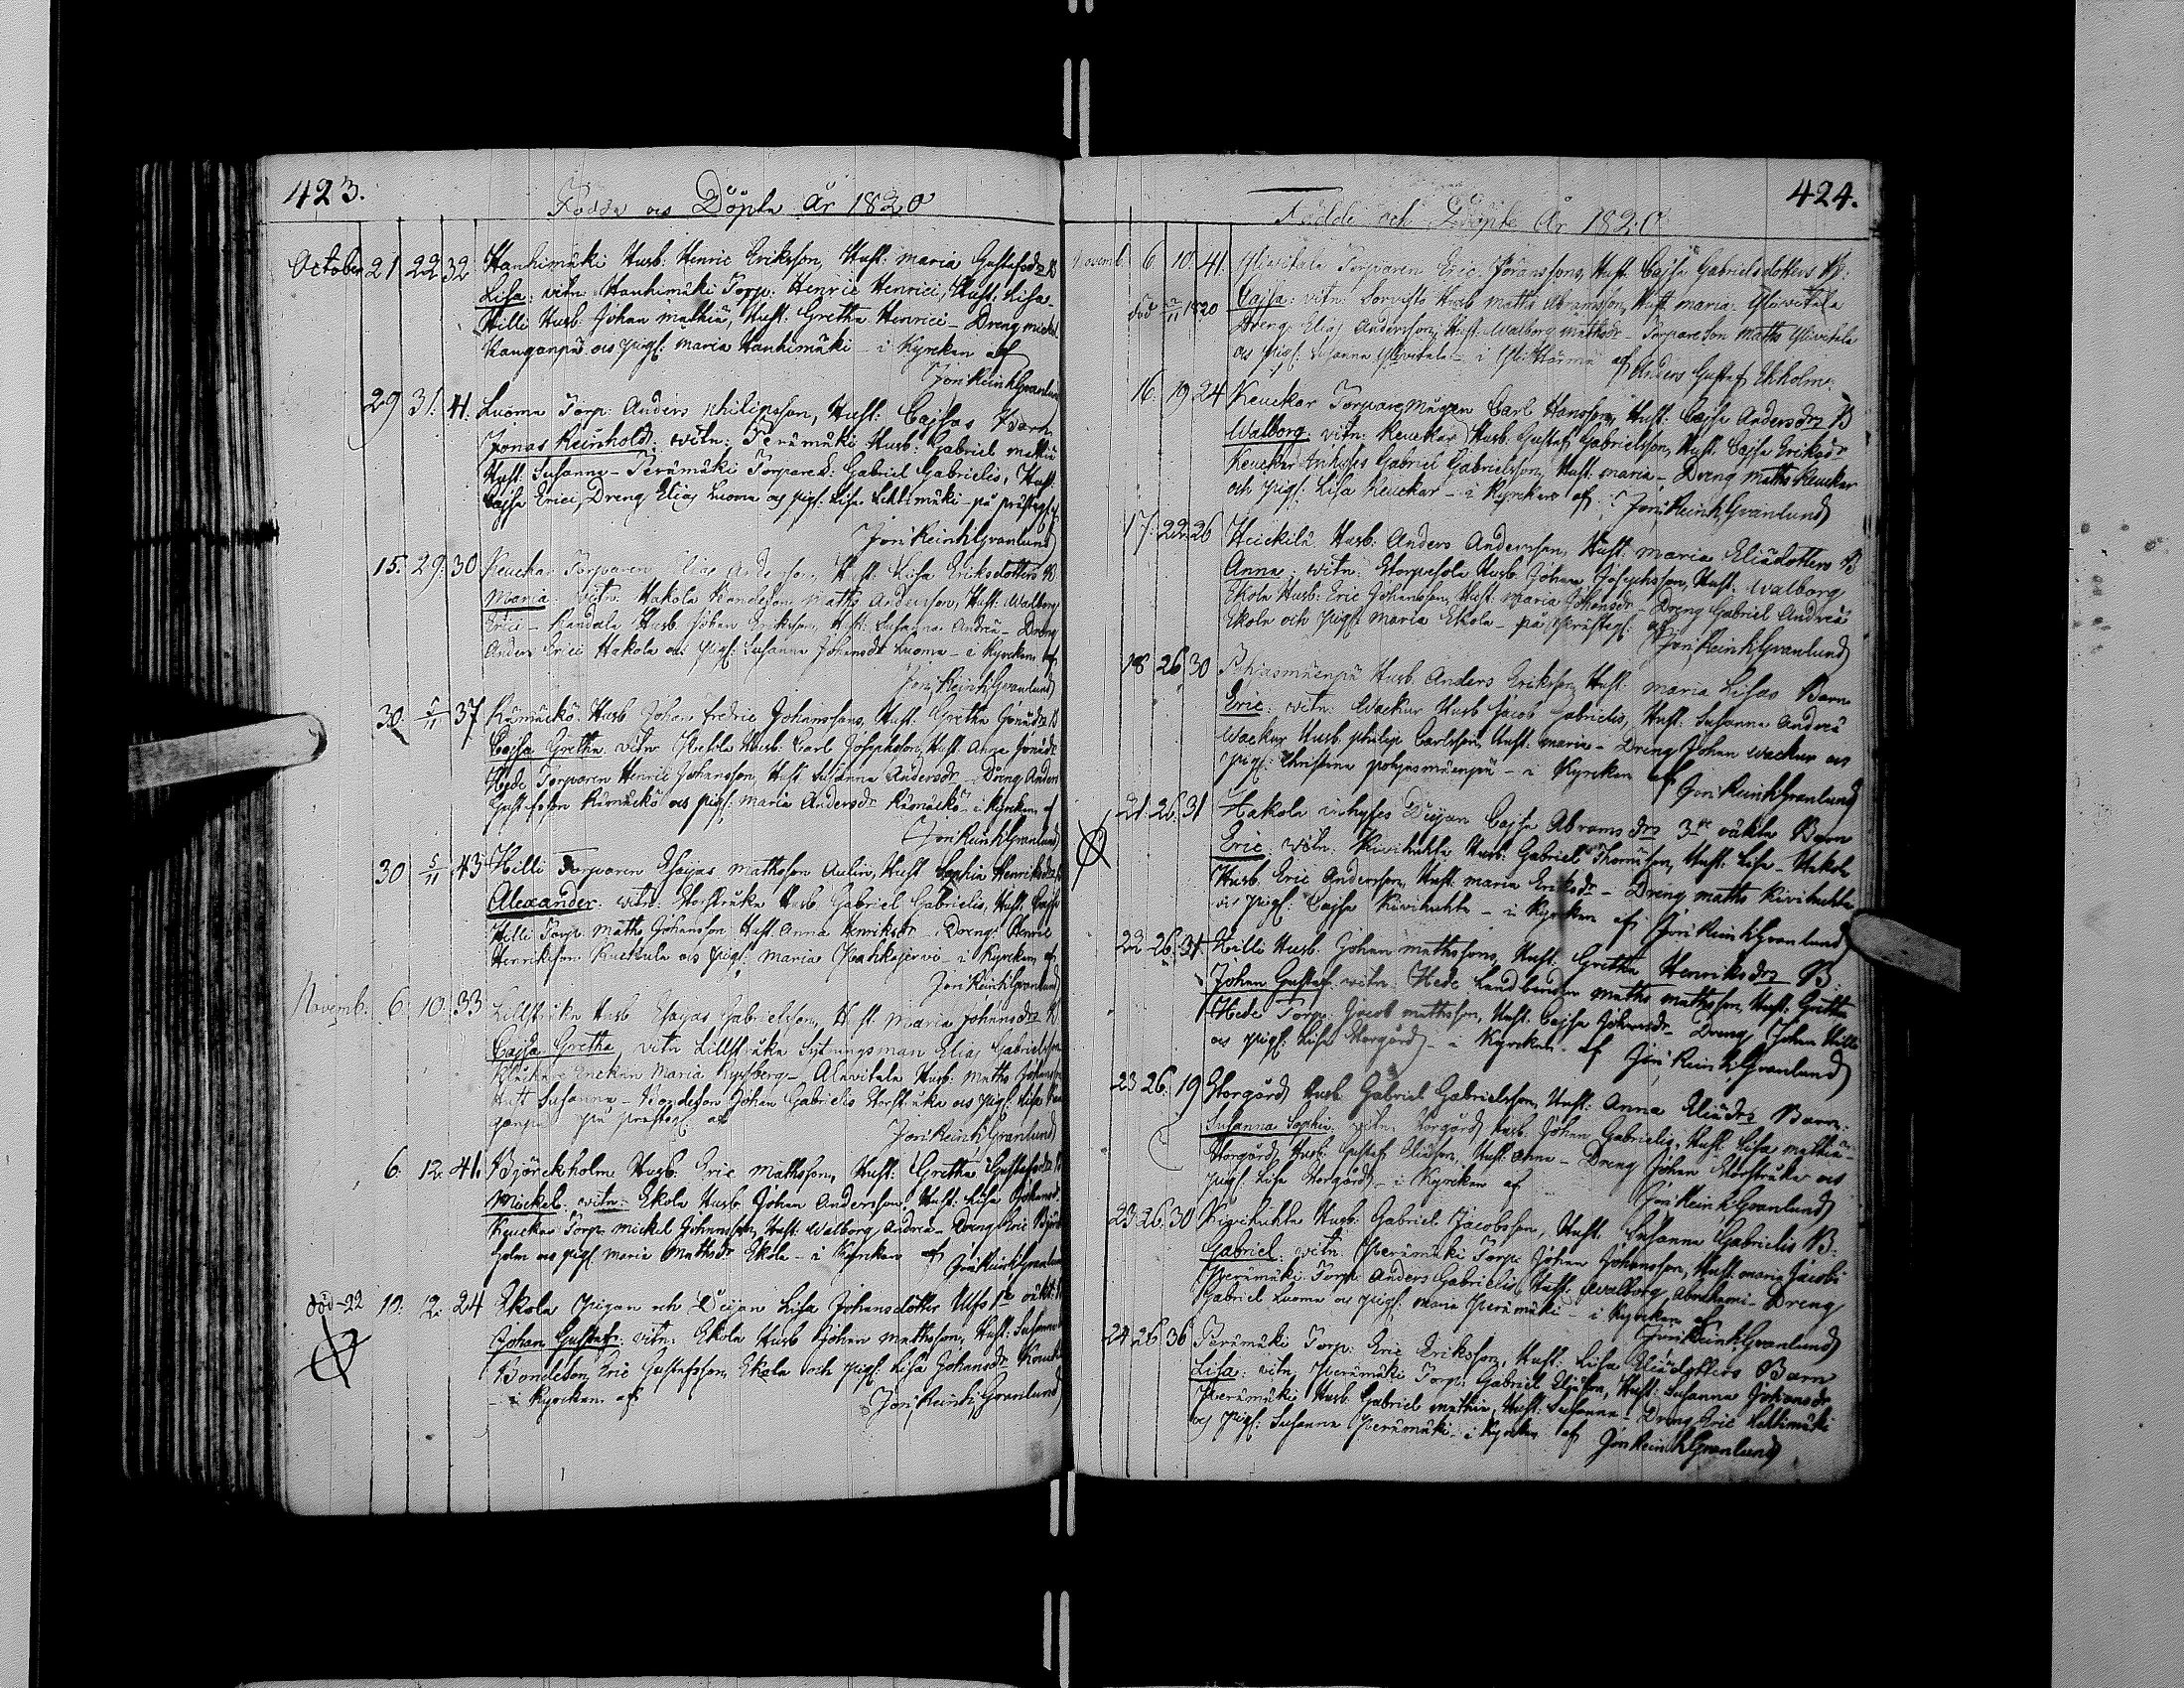 423.
Födde och Döpte År 1820
October 21 22 32 Hanhimäki Husb: Henric Eriksson, Hust: Maria Gustafsdrs B
Lisa: vitn: Hanhimäki Torp: Henric Henrici, Hust: Lisa-
Hilli Husb: Johan Mathiæ, Hust: Gretha Henrici - Dreng Mickel
Kanganpä och pig: Maria Hanhimäki - i Kyrckan af
Jon: Reinh: Granlund
29 31 41. Luoma Torp: Anders Philipsson, Hust: Cajsas Barn
Jonas Reinhold: vitn: Perämäki Husb: Gabriel Mathiæ
Hust: Susanna - Perämäki Torparen: Gabriel Gabrielis, Hust:
Cajsa Erici, Dreng Elias Luoma och pig: Lisa Lehtimäki - på prästeg: af
Jon: Reinh: Granlund
15. 29. 30 Keuckar Torparen Elias Andersson, Hust: Lisa Eriksdotters B
Maria: vitn: Hakola Bondeson Maths Andersson, Hust: Walborg
Erici - Husb Johan Eriksson, Hust: Susanna Andreæ - Dreng
Anders Erici Hakola och pig: Susanna Johansdr Luoma - i Kyrckan af
Jon: Reinh: Granlund
30. 5/11 37 Kämäckö Husb Johan Fredric Johanssons, Hust: Gretha Jonædrs B
Cajsa Gretha vitn: Husb: Carl Josephsson, Hust: Anna Jonædr
Hede Torparen Henric Johansson, Hust Susanna Andersdr - Dreng Anders
Gustafsson Kämäckö och pig: Maria Andersdr Kämäckö - i Kyrckan af
Jon: Reinh: Granlund
30 5/11 43 Hilli Torparen Esaijas Mathsson Aulin, Hust Sophia Henriksdrs B
Alexander: vitn: Storstråka Husb Gabriel Gabrielis, Hust: Cajsa
Hilli Torp: Maths Johansson Hust: Anna Henriksdr - Dreng: Henric
Henriksson Kuckula och pig: Maria Pahkajervi - i Kyrckan af
Jon: Reinh: Granlund
Novemb: 6. 10. 33 Lillstråka Husb Esaijas Gabrielsson, Hust Maria Johansdrs B
Cajsa Gretha, vitn Lillstråka Sytningsman Elias Gabrielsson
Enckan Maria - Alavitala Husb: Maths Johansson
Hust Susanna - Bondeson Johan Gabrielis Storstråka och pig: Lisa
på prästeg: af
Jon: Reinh: Granlund
6. 12. 41. Björckholm Husb: Eric Mathsson, Hust: Gretha Gustafsdrs B
Mickel: vitn: Ekola Husb Johan Andersson, Hust: Lisa Johansdr
Keuckar Torp: Mickel Johansson, Hust: Walborg Andreæ - Dreng Eric Björck
holm och pig: Maria Mathsdr Ekola - i Kyrckan af Jon: Reinh: Granlund
död-22 10. 12. 24 Ekola Pigan och Dejan Lisa Johansdotter Ulfs oäkt:
Johan Gustaf: vitn: Ekola Husb Johan Mathsson, Hust: Susanna
Bondeson Eric Gustafsson Ekola och pig: Lisa Johansdr Keuckar
- i Kyrckan af
Jon: Reinh: Granlund
424.
Födde och Döpte År 1820
Novemb 6. 10. 41. Ylivitala Torparen Eric Jöranssons, Hust: Cajsa Gabrielsdotters B:
död 22/11 1820 Cajsa: vitn: Sorvisto Husb Maths Abramsson, Hust: Maria - Ylivitala
Dreng Elias Andersson, Hust: Walborg Mathsdr - Torpareson Maths Ylivitala
och pig: Susanna Ylivitala - i Ylihärmä af Anders Gustaf Ekholm
16. 19 24 Keuckar Torparemågen Carl Hansson, Hust: Cajsa Andersdrs B
Walborg: vitn: Keuckar Husb: Gustaf Gabrielsson, Hust: Cajsa Eriksdr
Keuckar Inhyses Gabriel Gabrielsson, Hust: Maria - Dreng Maths Keuckar
och pig: Lisa Keuckar - i Kyrckan af Jon: Reinh: Granlund
17. 22. 26 Heickilä Husb: Anders Andersson, Hust: Maria Eliædotters B
Anna: vitn: Husb: Johan Josephsson, Hust: Walborg
Ekola Husb: Eric Johansson, Hust: Maria Johansdr - Dreng Gabriel Andreæ
Ekola och pig: Maria Ekola - på Prästeg: af
Jon: Reinh: Granlund
18 26 30 Pohjasmäenpä Husb: Anders Eriksson, Hust: Maria Lisas Barn
Eric: vitn: Wackur Husb Jacob Gabrielis, Hust: Susanna Andreæ
Wackur Husb: Philip Carlsson, Hust: Maria - Dreng Johan Wackur och
pig: Christina Pohjasmäenpä - i Kyrckan af Jon: Reinh: Granlund
21. 26. 31 Hakola inhyses Dejan Cajsa Abramsdrs 3dje oäkta Barn
Eric: vitn: Kivihuhta Husb: Gabriel Thomasson, Hust: Lisa - Hakola
Husb: Eric Andersson, Hust: Maria Eriksdr - Dreng Maths Kivihuhta
och pig: Cajsa Kivihuhta - i Kyrckan af Jon: Reinh: Granlund
22 26. 31 Hilli Husb: Johan Mathssons, Hust: Gretha Henriksdrs B:
Johan Gustaf: vitn: Hede Landbonden Maths Mathsson, Hust: Gretha
Hede Torp: Jacob Mathsson, Hust: Cajsa Johansdr - Dreng Johan Hilli
och pig: Lisa Storgård - i Kyrckan af Jon: Reinh: Granlund
23 26. 19 Storgård Husb: Gabriel Gabrielsson, Hust: Anna Eliædrs Barn
Susanna Sophia: vitn: Storgård Husb: Johan Gabrielis, Hust: Lisa Mathiæ -
Storgård Husb: Gustaf Eliæson, Hust: Anna - Dreng Johan Storstråka och
pig: Lisa Storgård - i Kyrckan af Jon: Reinh: Granlund
23 26. 30 Kivihuhta Husb: Gabriel Jacobsson, Hust: Susanna Gabrielis B:
Gabriel: vitn: Perämäki Torp: Johan Johansson, Hust: Maria Jacobi
Perämäki Torp: Anders Gabrielis, Hust: Walborg Abrahami - Dreng
Gabriel Luoma och pig: Maria Perämäki - i Kyrckan af
Jon: Reinh: Granlund
24 26 36 Perämäki Torp: Eric Eriksson, Hust: Lisa Eliædotters Barn
Lisa: vitn: Perämäki Torp: Gabriel Eliæson, Hust: Susanna Johansdr
Perämäki Husb: Gabriel Mathiæ, Hust: Susanna - Dreng Eric Lahtimäki
och pig: Susanna Perämäki - i Kyrckan af Jon: Reinh: Granlund